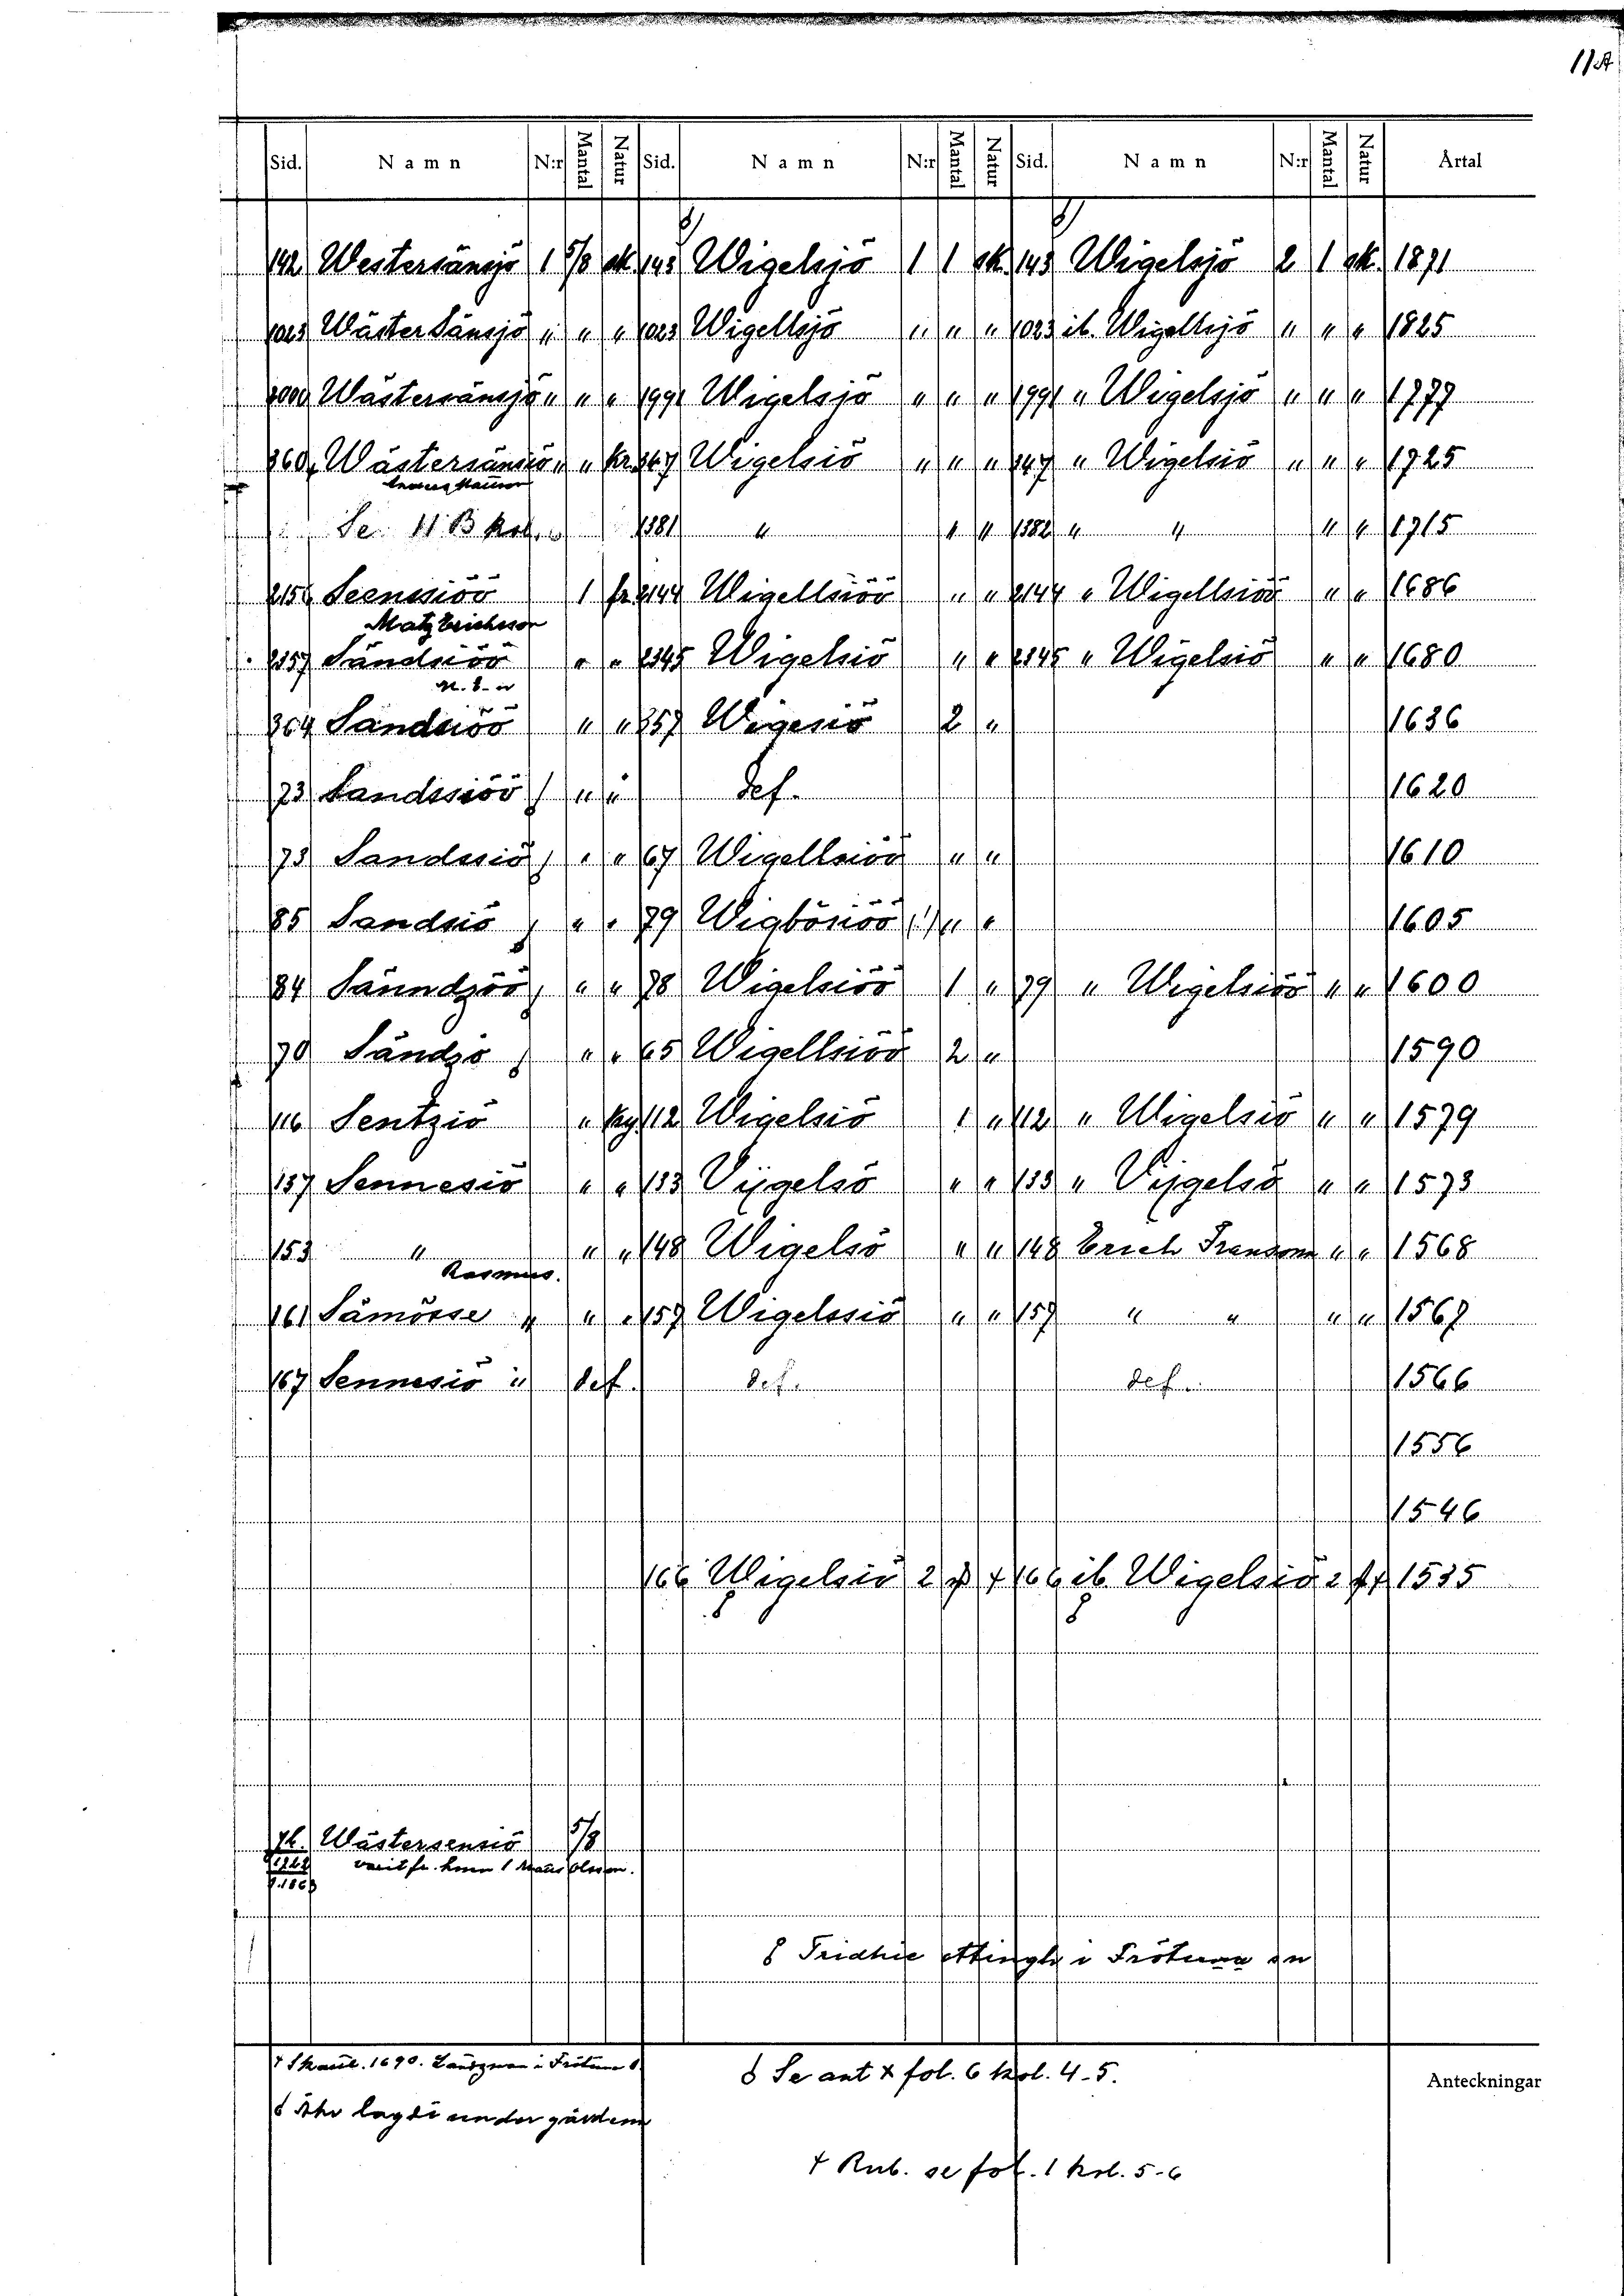 11A
Sid. Namn N:r Mantal Natur Sid. Namn N:r Mantal Natur Sid. Namn N:r Mantal Natur Årtal
142 Westersänsjö 1 5/8 sk. 143 Wigelsjö 1 1 sk. 143 Wigelsjö 2 1 sk. 1871
1023 Wäster Sänsjö " " " 1023 Wigellsjö " " " 1023 ib. Wigellsjö " " " 1825
2000 Wästersänsjö " " " 1991 Wigelsjö " " " 1991 " Wigelsjö " " " 1777
360 Wästersänsiö " " kr. 347 Wigelsiö " " " 347 " Wigelsiö " " " 1725
Se 11 B kol. 1381 " " " 1382 " " " " 1715
2156 Seensiöö 1 fr. 2144 Wigellsiöö " " 2144 " Wigellsiöö " " 1686
Matz Erichsson
2357 Sändsiöö " " 2345 Wigelsiö " " 2345 " Wigelsiö " " 1680
M. E-n
364 Sandsiöö " " 357 Wigesiö 2 " 1636
73 Sandssiöö " " def. 1620
73 Sandssiö " " 67 Wigellsiöö " " 1610
85 Sandsiö " " 79 Wigbösiöö (!) " " 1605
84 Sänndzöö " " 78 Wigelsiöö 1 " 79 " Wigelsiöö " " 1600
70 Sändzö " " 65 Wigellsiöö 2 " 1590
116 Sentziö " 112 Wigelsiö 1 " 112 " Wigelsiö " " 1579
137 Sennesiö " " 133 Vijgelsö " " 133 " Vijgelsö " " 1573
153 " " " 148 Wigelsö " " 148 Erich Fransom " " 1568
Rasmus.
161 Sämösse " " " 157 Wigelssiö " " 157 " " " " 1567
167 Sennesiö " def. def. def. 1566
1556
1546
166 Wigelsiö 2 166 ib Wigelsiö 2 1535
Wästersensiö 5/8
varit fr. hmn 1 Mats Olsson.
Tridhie attingh i Frötuna sn
1690. i Frötuna
lagdt under gården
Se ant x fol. 6 kol. 4-5.
Anteckningar
† Rub. se fol. 1 kol. 5-6